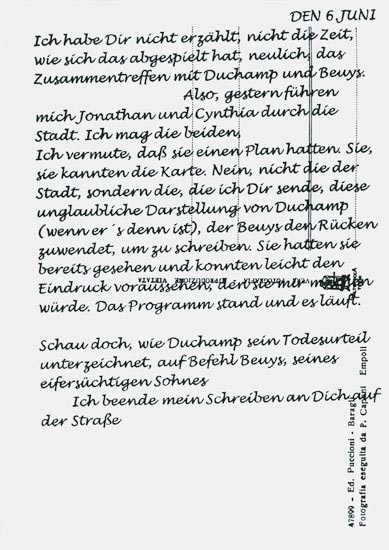 DEN 6 JUNI
Ich habe Dir nicht erzählt, nicht die Zeit,
wie sich das abgespielt hat, neulich, das
Zusammentreffen mit Duchamp und Beuys.
Also, gestern führen
mich Jonathan und Cynthia durch die
Stadt. Ich mag die beiden,
Ich vermute, daß sie einen Plan hatten. Sie,
sie kannten die Karte. Nein, nicht die der
Stadt, sondern die, die ich Dir sende, diese
unglaubliche Darstellung von Duchamp
(wenn er´s denn ist), der Beuys den Rücken
zuwendet, um zu schreiben. Sie hatten sie
bereits gesehen und konnten leicht den
Eindruck voraussehen, den sie mir
würde. Das Programm stand und es läuft.
Schau doch, wie Duchamp sein Todesurteil
unterzeichnet, auf Befehl Beuys, seines
eifersüchtigen Sohnes
Ich beende mein Schreiben an Dich auf
der Straße
VERA FOTOGRAFIA RIPRODUZIONE VIETATA
47899 - Ed. Puccioni -
Fotografia eseguita da P. Empoli